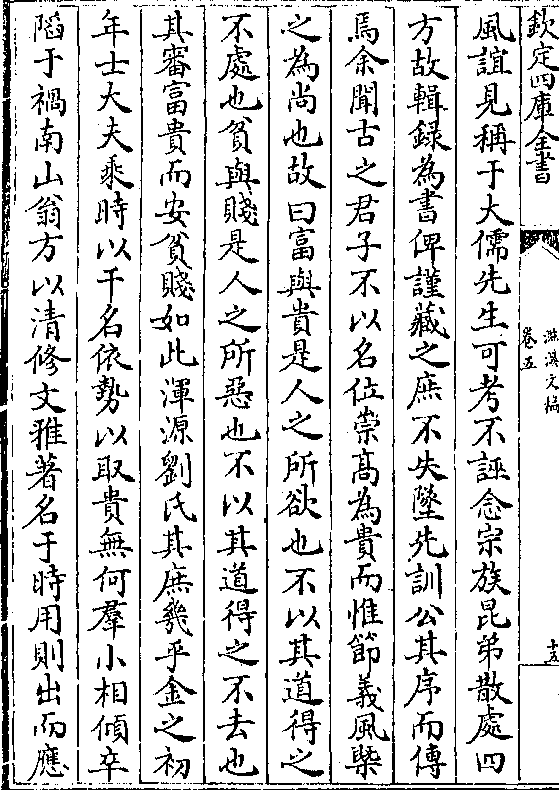 欽定四庫全書
滋溪文稿
卷五
十五
風誼見稱于大儒先生可考不誣念宗族昆弟散處四
方故輯録為書俾謹藏之庶不失墜先訓公其序而傳
焉余聞古之君子不以名位崇髙為貴而惟節義風槩
之為尚也故曰富與貴是人之所欲也不以其道得之
不處也貧與賤是人之所惡也不以其道得之不去也
其審富貴而安貧賤如此渾源劉氏其庶㡬乎金之初
年士大夫乘時以干名依勢以取貴無何羣小相傾卒
䧟于禍南山翁方以清修文雅著名于時用則出而應